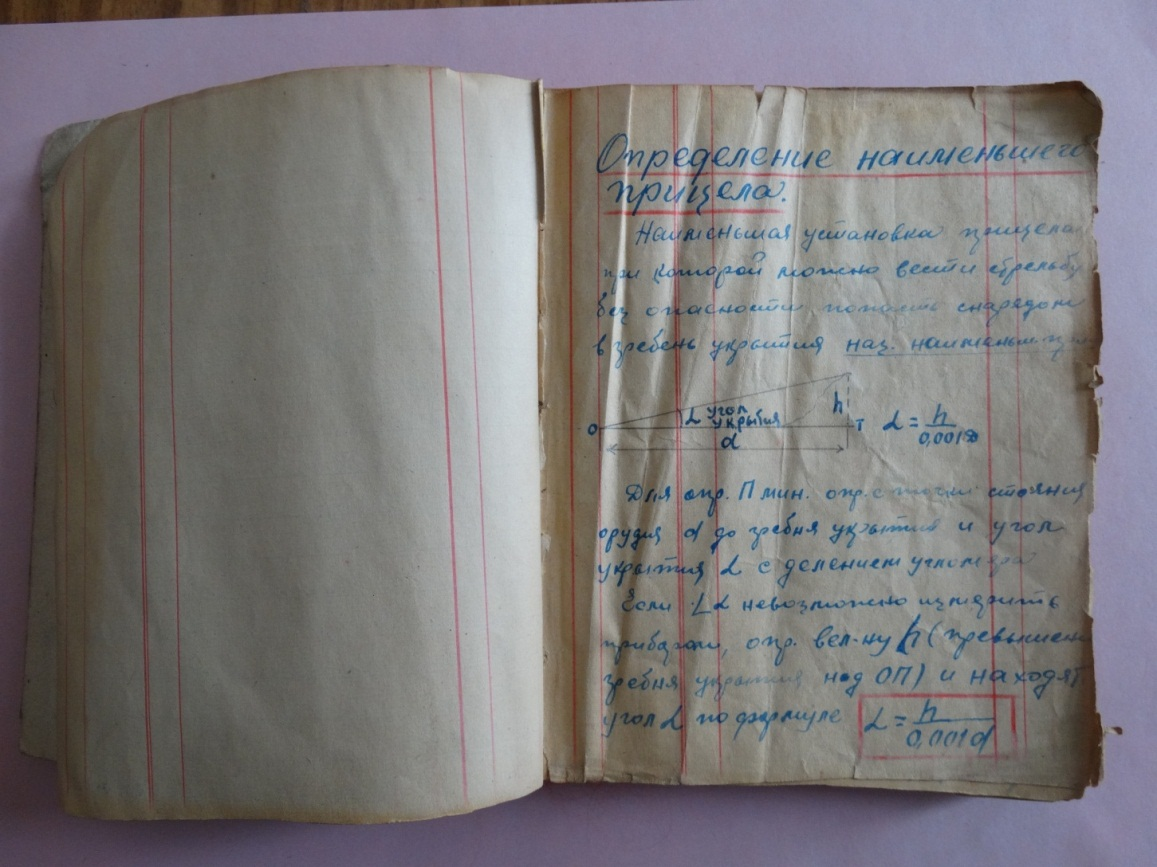 Определение наименьшего
прицела.
Наименьшая установка прицела
при которой можно вести стрельбу
без опасности попасть снарядом
в гребень укрытия наз. наименьш.
h
α угол
укрытия
O
T
d
α = h / 0,001d
Для опр. П мин. опр. с точки стояния
орудия d до гребня укрытия и угол
укрытия α с делением угломера
Если ∠α невозможно измерить
прибором, опр. вел-ну h (превышение
гребня укрытия над ОП) и находят
угол α по формуле α = h / 0,001d